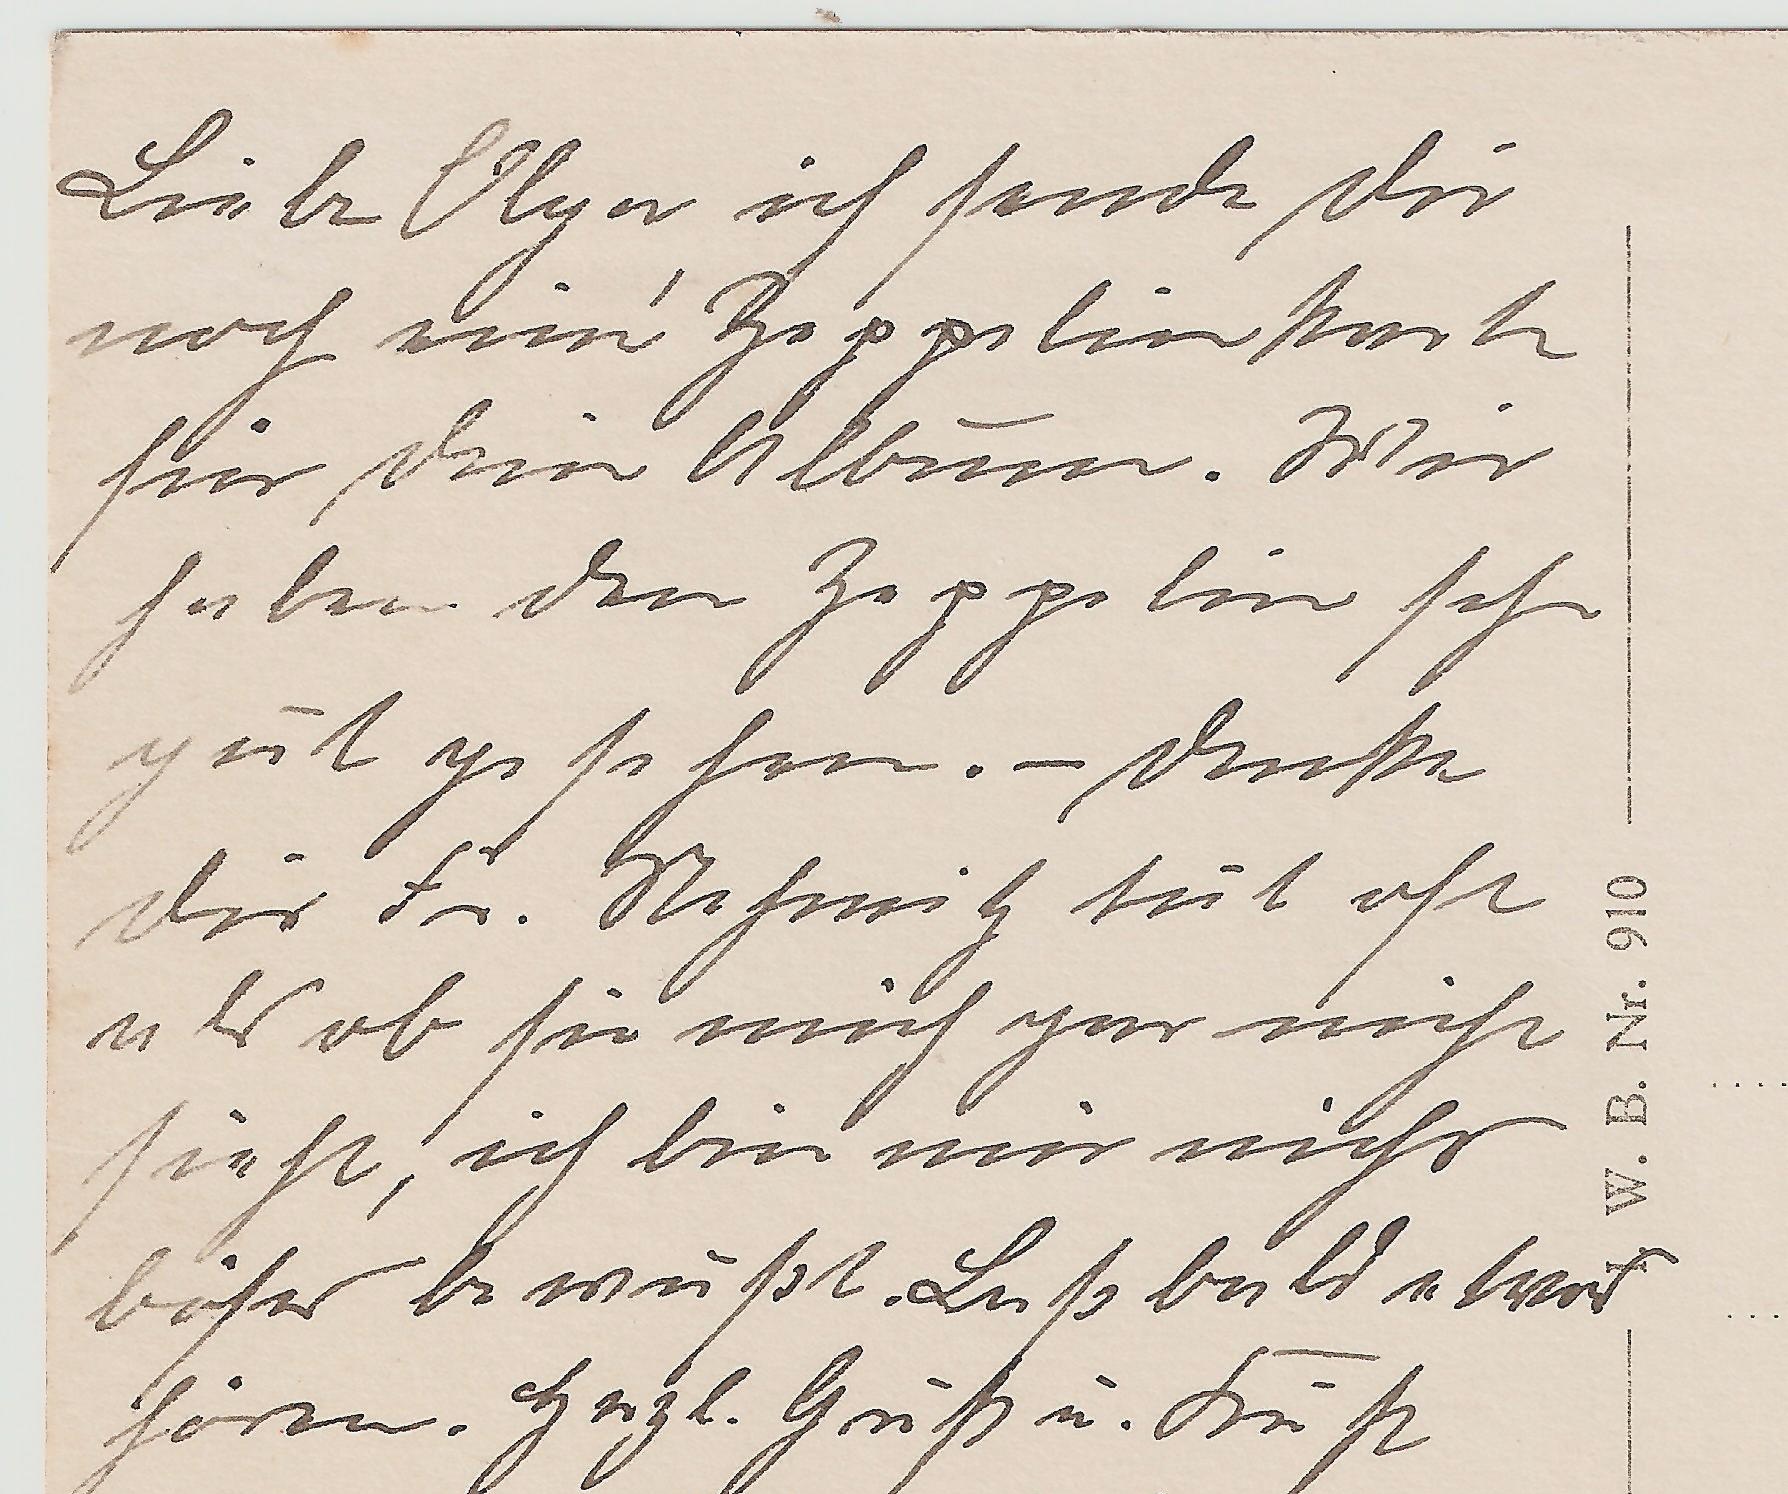 Liebe Olga ich sende dir
noch ein' Zeppelinkarte
für dein Album. Wir
haben den Zeppelin sehr
gut gesehen. – Denke
dir Fr. tut oft
als ob sie mich gar nicht
sieht, ich bin mir nichts
böses bewußt. Laß bald etwas
hören. Herzl. Gruß u. Kuß
W. B. Nr. 910